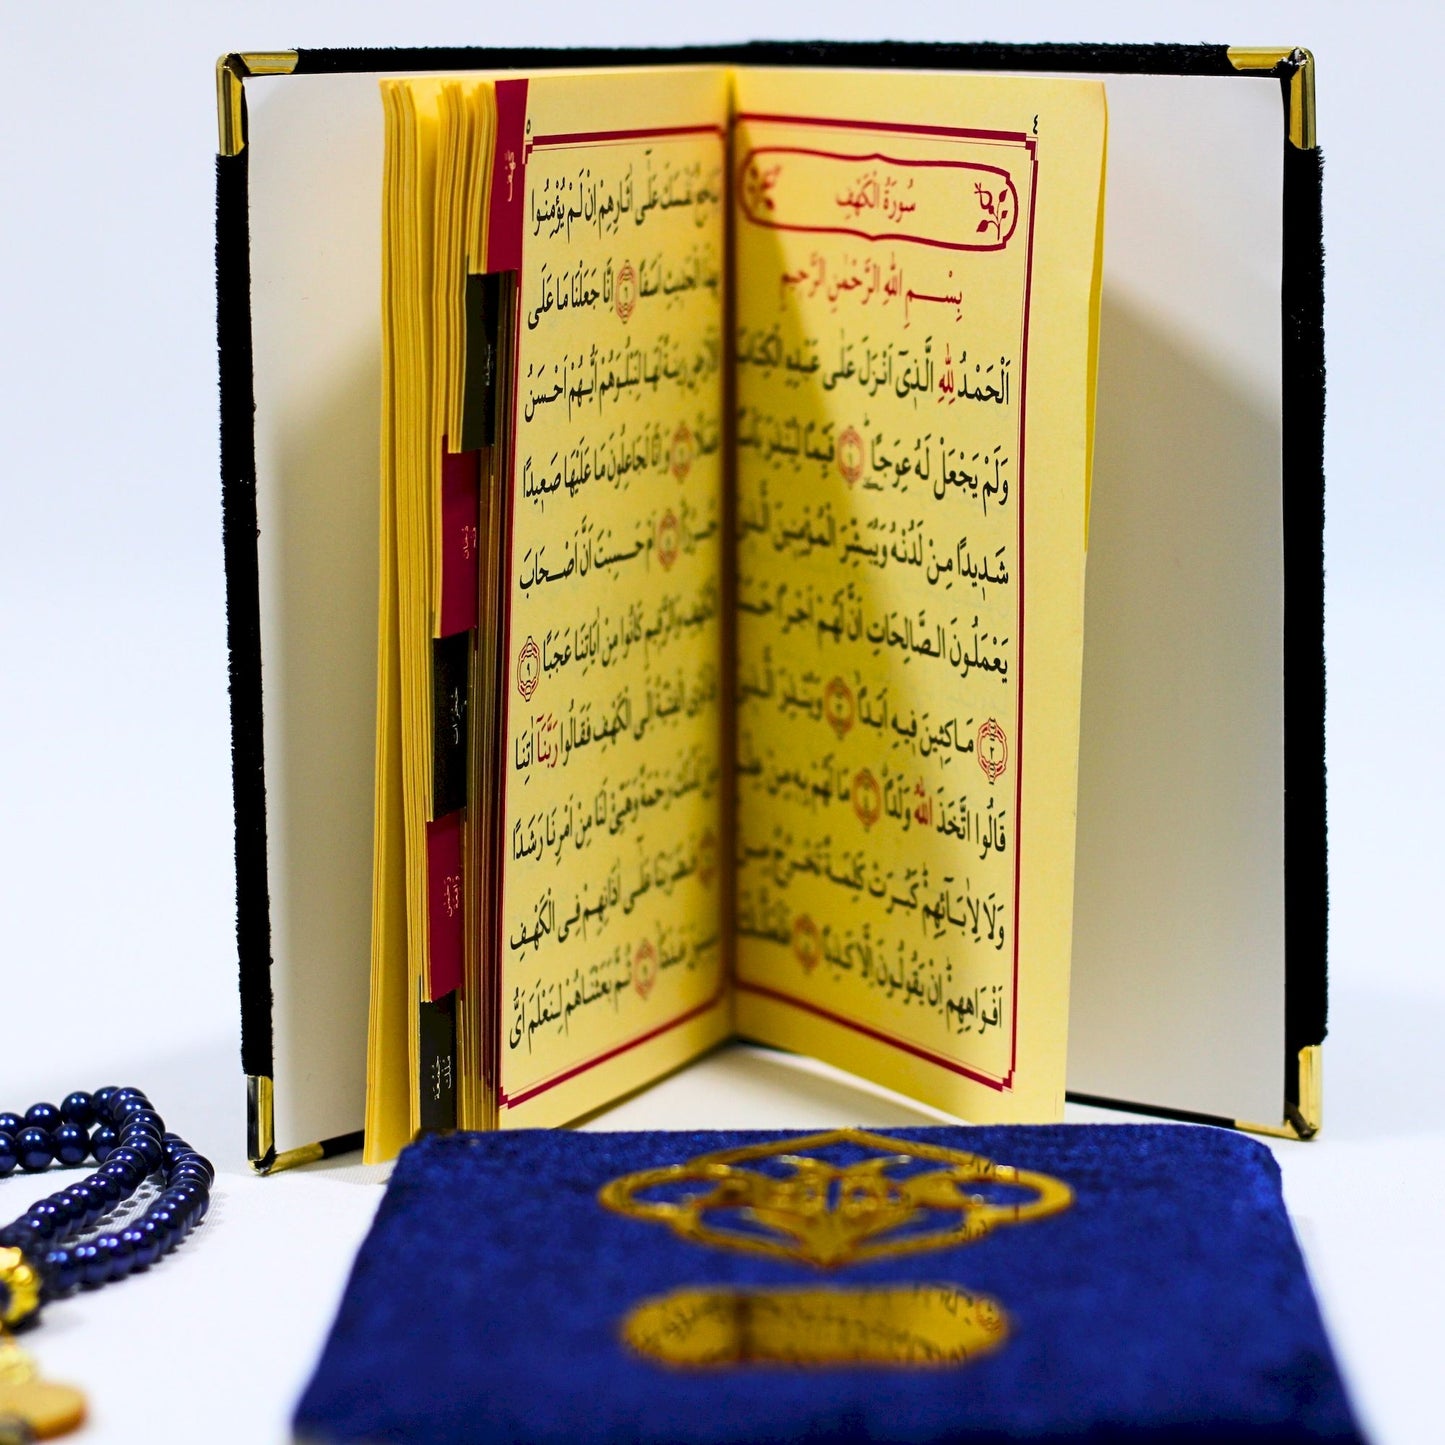 ٤
سُورَةُ الْكَهْفِ
بِسْــمِ اللّٰهِ الرَّحْمٰنِ الرَّحٖيمِ
اَلْحَمْدُ لِلّٰهِ الَّذٖٓى اَنْزَلَ عَلٰى عَبْدِهِ الْكِتَابَ
وَلَمْ يَجْعَلْ لَهُ عِوَجًا ١ قَيِّمًا لِيُنْذِرَ بَاْسًا
شَدٖيدًا مِنْ لَدُنْهُ وَيُبَشِّرَ الْمُؤْمِنٖينَ الَّذٖينَ
يَعْمَلُونَ الصَّالِحَاتِ اَنَّ لَهُمْ اَجْرًا حَسَنًا
٢ مَاكِثٖينَ فٖيهِ اَبَدًا ٣ وَيُنْذِرَ الَّذٖينَ
قَالُوا اتَّخَذَ اللّٰهُ وَلَدًا ٤ مَا لَهُمْ بِهٖ مِنْ عِلْمٍ
وَلَا لِاٰبَٓائِهِمْ كَبُرَتْ كَلِمَةً تَخْرُجُ مِنْ
اَفْوَاهِهِمْ اِنْ يَقُولُونَ اِلَّا كَذِبًا ٥ فَلَعَلَّكَ
٥
بَاخِعٌ نَفْسَكَ عَلٰٓى اٰثَارِهِمْ اِنْ لَمْ يُؤْمِنُوا
بِهٰذَا الْحَدٖيثِ اَسَفًا ٦ اِنَّا جَعَلْنَا مَا عَلَى
الْاَرْضِ زٖينَةً لَهَا لِنَبْلُوَهُمْ اَيُّهُمْ اَحْسَنُ
عَمَلًا ٧ وَاِنَّا لَجَاعِلُونَ مَا عَلَيْهَا صَعٖيدًا
جُرُزًا ٨ اَمْ حَسِبْتَ اَنَّ اَصْحَابَ
الْكَهْفِ وَالرَّقٖيمِ كَانُوا مِنْ اٰيَاتِنَا عَجَبًا ٩
اِذْ اَوَى الْفِتْيَةُ اِلَى الْكَهْفِ فَقَالُوا رَبَّنَٓا اٰتِنَا
مِنْ لَدُنْكَ رَحْمَةً وَهَيِّئْ لَنَا مِنْ اَمْرِنَا رَشَدًا
١٠ فَضَرَبْنَا عَلٰٓى اٰذَانِهِمْ فِى الْكَهْفِ
سِنٖينَ عَدَدًا ١١ ثُمَّ بَعَثْنَاهُمْ لِنَعْلَمَ اَىُّ
كَهْف
سَجْدَة
دُخَان
فَتْح
حُجُرَات
رَحْمٰن
وَاقِعَة
جُمُعَة
مُلْك